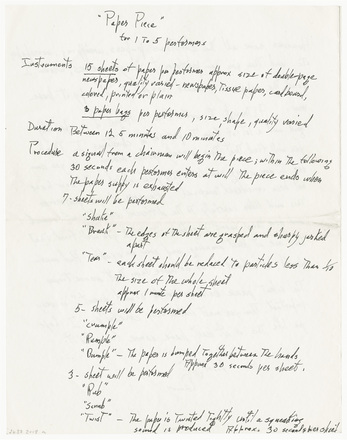 "Paper Piece"
for 1 to 5 performers
Instruments 15 sheets of paper per performer approx size of double-page
newspaper, quality varied - newspaper, tissue paper, cardboard,
colored, printed or plain
3 paper bags per performer, size, shape, quality varied
Duration Between 12.5 minutes and 10 minutes
Procedure a signal from a chairman will begin the piece; within the following
30 seconds each performer enters at will. The piece ends when
the paper supply is exhausted
7 - sheets will be performed
"shake"
"Break" - the edges of the sheet are grasped and sharply jerked
apart
"Tear" - each sheet should be reduced to particles less than 1/10
the size of the whole sheet
approx 1 minute per sheet
5 - sheets will be performed
"crumple"
"Rumple"
"Bumple" - The paper is bumped together between the hands.
Approx 30 seconds per sheet.
3 - sheet will be performed
"Rub"
"Scrub"
"Twist" - The paper is twisted tightly until a squeaking
sound is produced Approx. 30 seconds per sheet